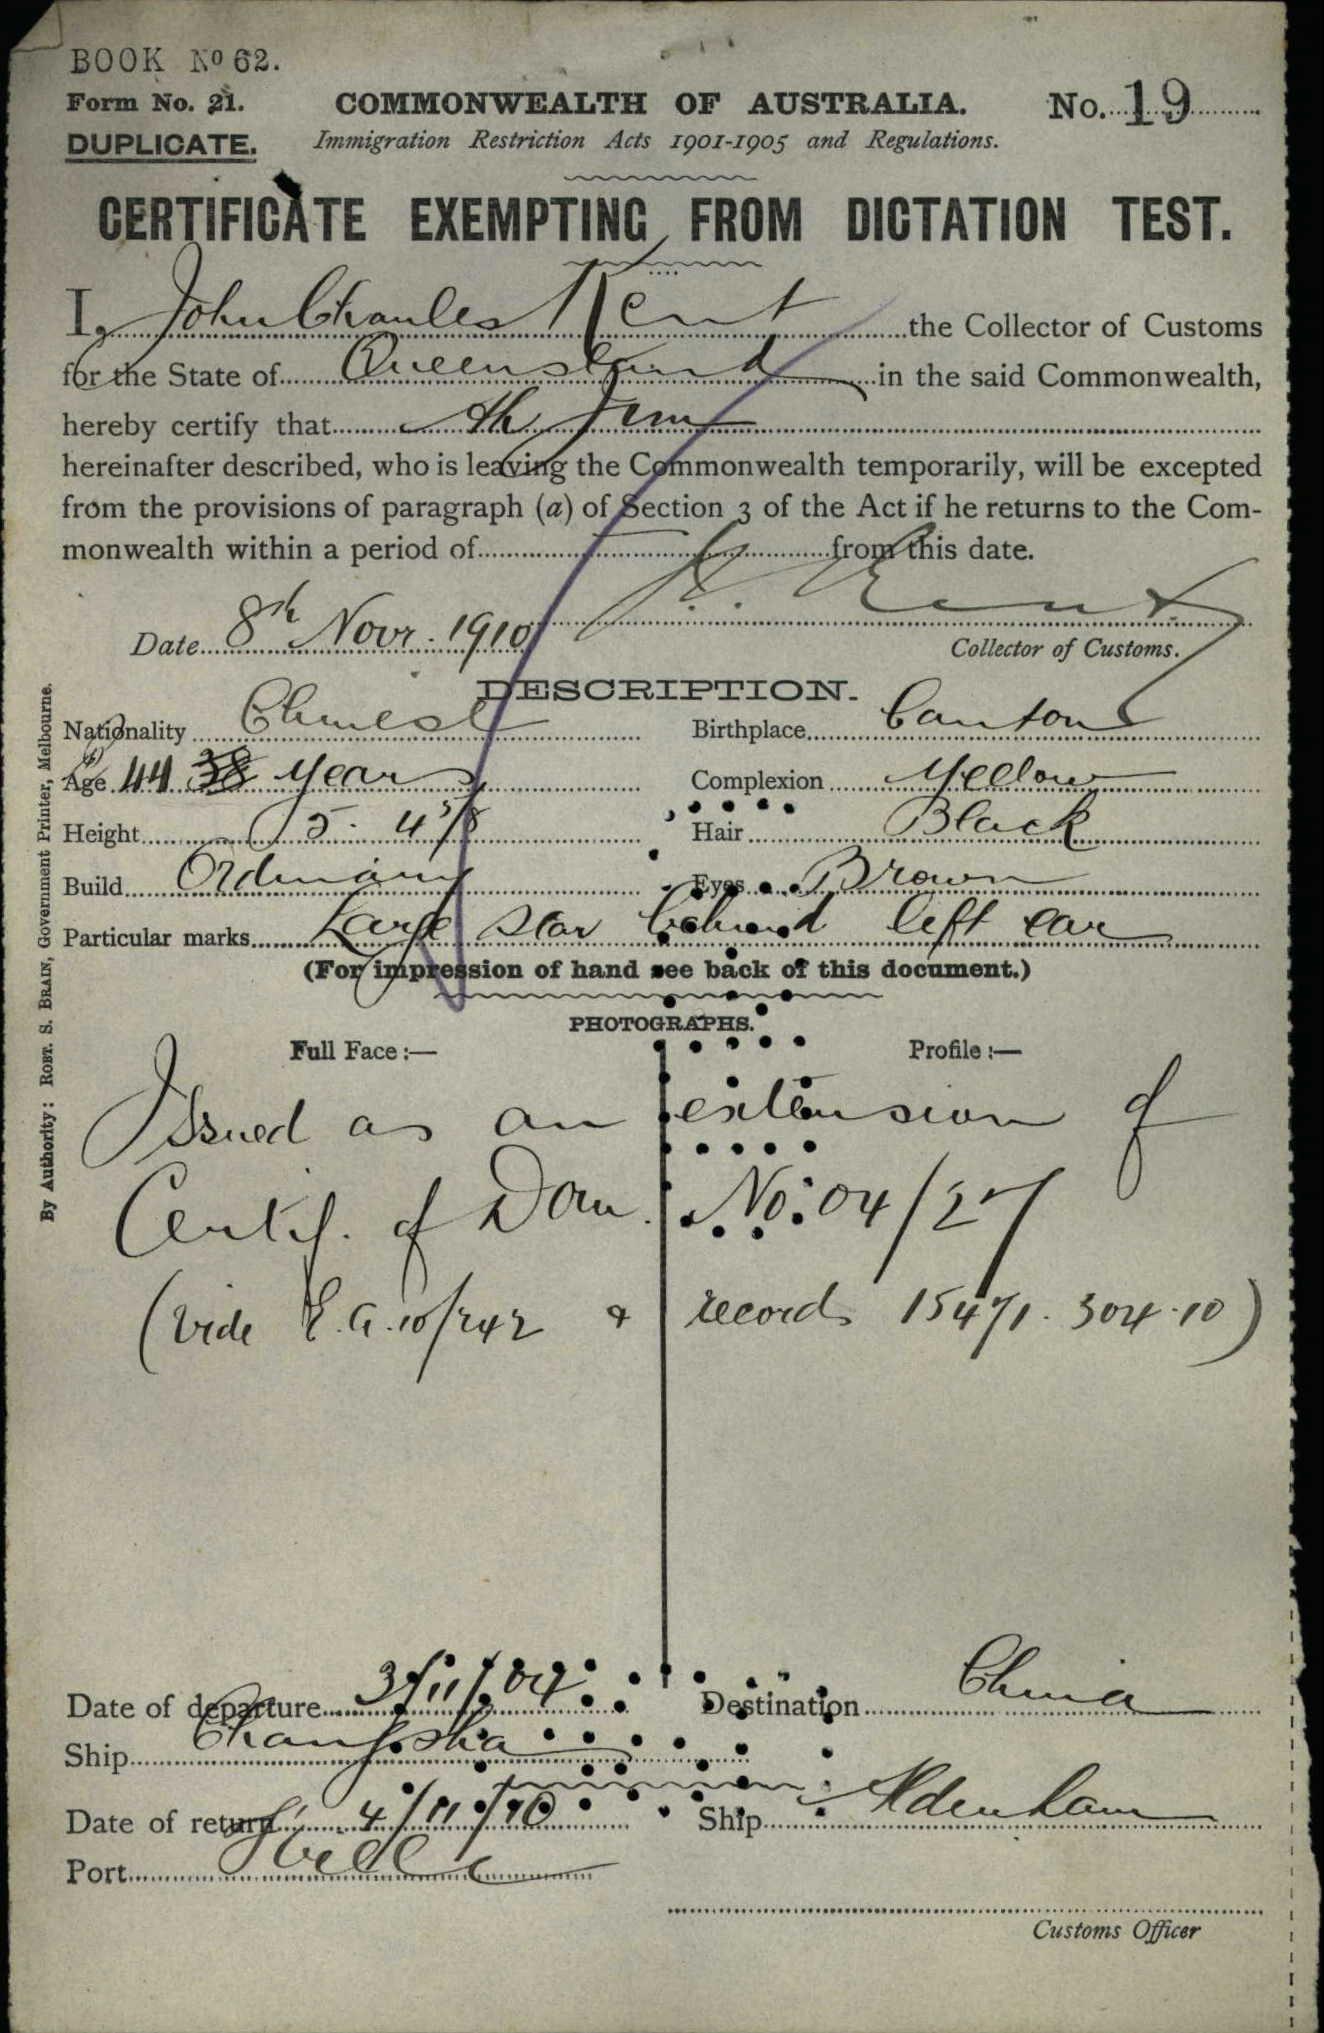 BOOK No 62.
Form No. 21. COMMONWEALTH OF AUSTRALIA. No. 19
DUPLICATE. Immigration Restriction Acts 1901-1905 and Regulations.
CERTIFICATE EXEMPTING FROM DICTATION TEST.
I, John Charles Kent the Collector of Customs
for the State of Queensland in the said Commonwealth,
hereby certify that Ah
hereinafter described, who is leaving the Commonwealth temporarily, will be excepted
from the provisions of paragraph (a) of Section 3 of the Act if he returns to the Com-
monwealth within a period of from this date.
Kent
Date 8th Novr. 1910 Collector of Customs.
DESCRIPTION.
Nationality Chinese Birthplace Canton
Age 44 38 years Complexion Yellow
Height 5. 4 5/8 Hair Black
Build Ordinary Eyes Brown
Particular marks Large scar behind left ear
(For impression of hand see back of this document.)
PHOTOGRAPHS.
Full Face:— Profile:—
Issued as an extension of
Certif. of Dom. No. 04/27
(vide E.A. 10/242 & records 15471. 304.10)
Date of departure 3/11/04 Destination China
Ship Changsha
Date of return 4/11/10 Ship Aldenham
Port T'ville
Customs Officer
By Authority: ROBT. S. BRAIN, Government Printer, Melbourne.